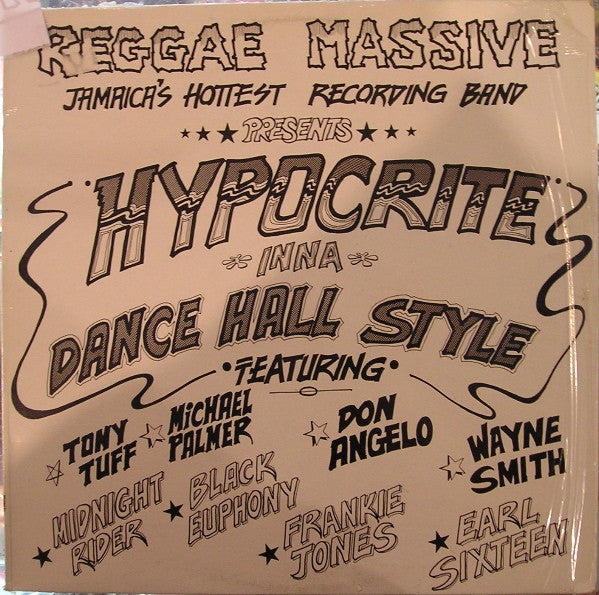 REGGAE MASSIVE
JAMAICA'S HOTTEST RECORDING BAND
PRESENTS
HYPOCRITE
INNA
DANCE HALL STYLE
• FEATURING •
TONY TUFF
MICHAEL PALMER
DON ANGELO
WAYNE SMITH
MIDNIGHT RIDER
BLACK EUPHONY
FRANKIE JONES
EARL SIXTEEN